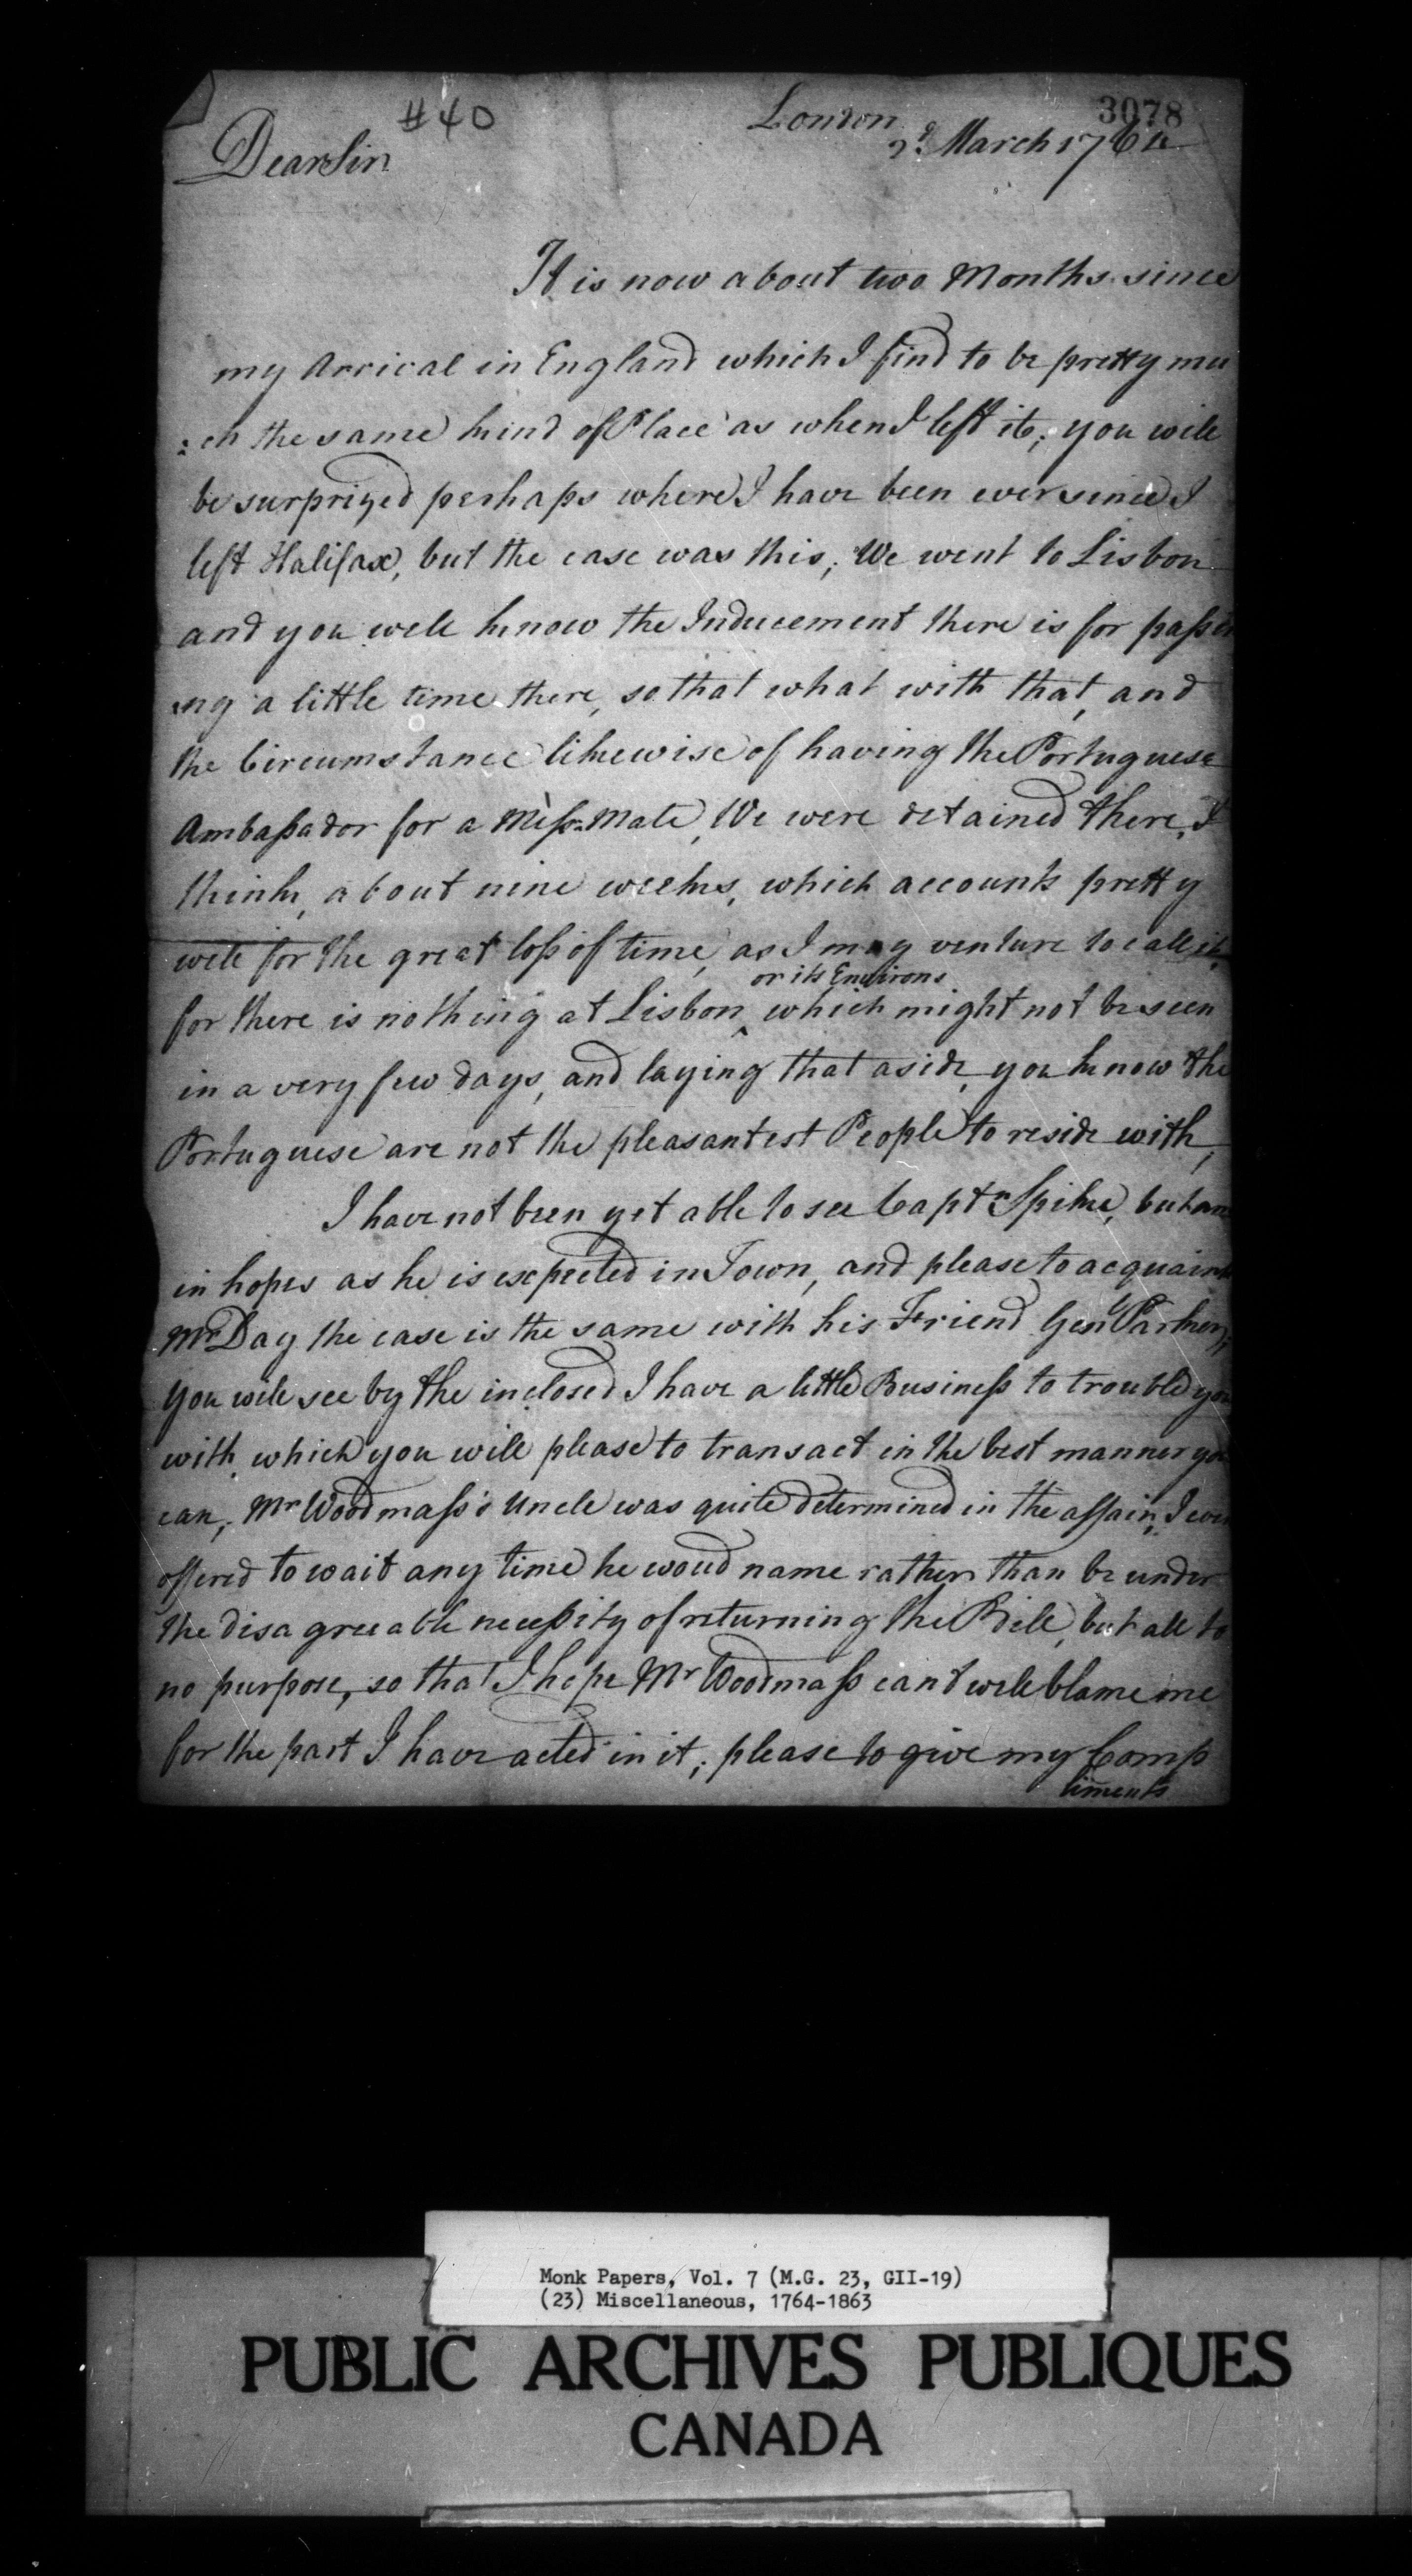 #40
London 3078
2d March 1764
Dear Sir
It is now about two Months since
my Arrival in England which I find to be pretty mu
:ch the same kind of Place as when I left it; you will
be surprized perhaps where I have been ever since I
left Halifax, but the case was this; We went to Lisbon
and you well know the Inducement there is for pass
ing a little time there, so that what with that, and
the Circumstance likewise of having the Portuguese
Ambassador for a Mess-Mate, We were detained there, I
think, about nine weeks, which accounts pretty
well for the great loss of time, as I may venture to call it,
or its Environs
for there is nothing at Lisbon ^ which might not be seen
in a very few days, and laying that aside, you know the
Portuguese are not the pleasantest People to reside with,
I have not been yet able to see Captn Spike, but am
in hopes as he is expected in Town, and please to acquaint
Mr Day the case is the same with his Friend Genl Parker;
You will see by the inclosed I have a little Business to trouble you
with, which you will please to transact in the best manner you
can; Mr Woodmass's Uncle was quite determined in the affair, I even
offered to wait any time he woud name rather than be under
the disagreeable necessity of returning the Bill, but all to
no purpose, so that I hope Mr Woodmass cant well blame me
for the part I have acted in it; please to give my Comp
liments
Monk Papers, Vol. 7 (M.G. 23, GII-19)
(23) Miscellaneous, 1764-1863
PUBLIC ARCHIVES PUBLIQUES
CANADA